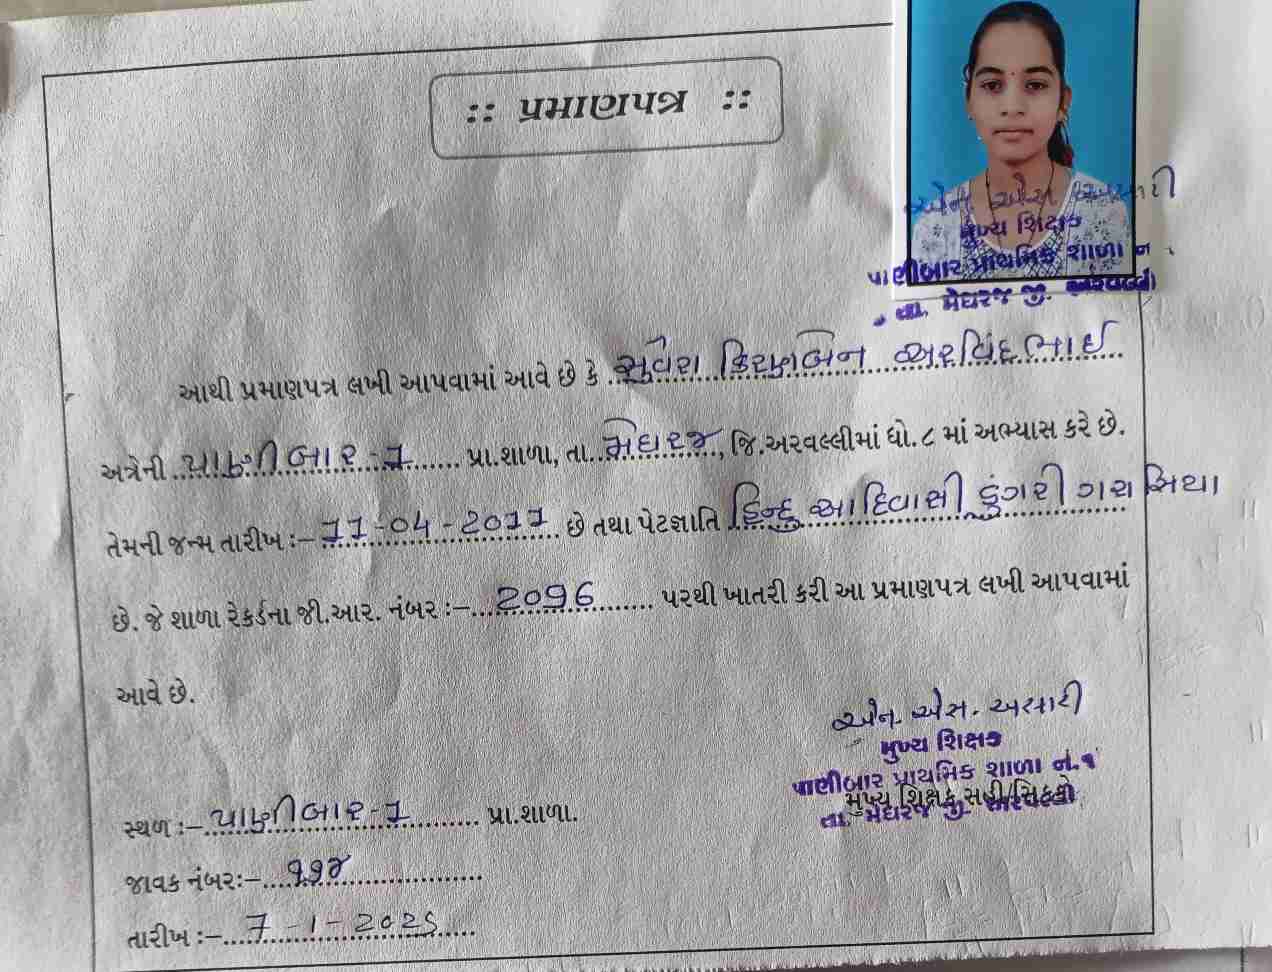 :: પ્રમાણપત્ર ::
એન. એસ. અસારી
મુખ્ય શિક્ષક
પાણીબાર પ્રાથમિક શાળા નં.
તા. મેઘરજ જી. અરવલ્લી
આથી પ્રમાણપત્ર લખી આપવામાં આવે છે કે સુવેરા કિરણબેન અરવિંદભાઈ
અત્રેની પાણીબાર-1 પ્રા.શાળા, તા. મેઘરજ, જિ.અરવલ્લીમાં ધો.૮ માં અભ્યાસ કરે છે.
તેમની જન્મ તારીખ :- 11-04-2011 છે તથા પેટજ્ઞાતિ હિન્દુ આદિવાસી ડુંગરી ગરાસિયા
છે. જે શાળા રેકર્ડના જી.આર. નંબર :- 2096 પરથી ખાતરી કરી આ પ્રમાણપત્ર લખી આપવામાં
આવે છે.
એન. એસ. અસારી
મુખ્ય શિક્ષક
પાણીબાર પ્રાથમિક શાળા નં.૧
મુખ્ય શિક્ષક સહી/સિક્કો
તા. મેઘરજ જી. અરવલ્લી
સ્થળ :- પાણીબાર-1 પ્રા.શાળા.
જાવક નંબર:- ૧૧૪
તારીખ :- 7-1-2025